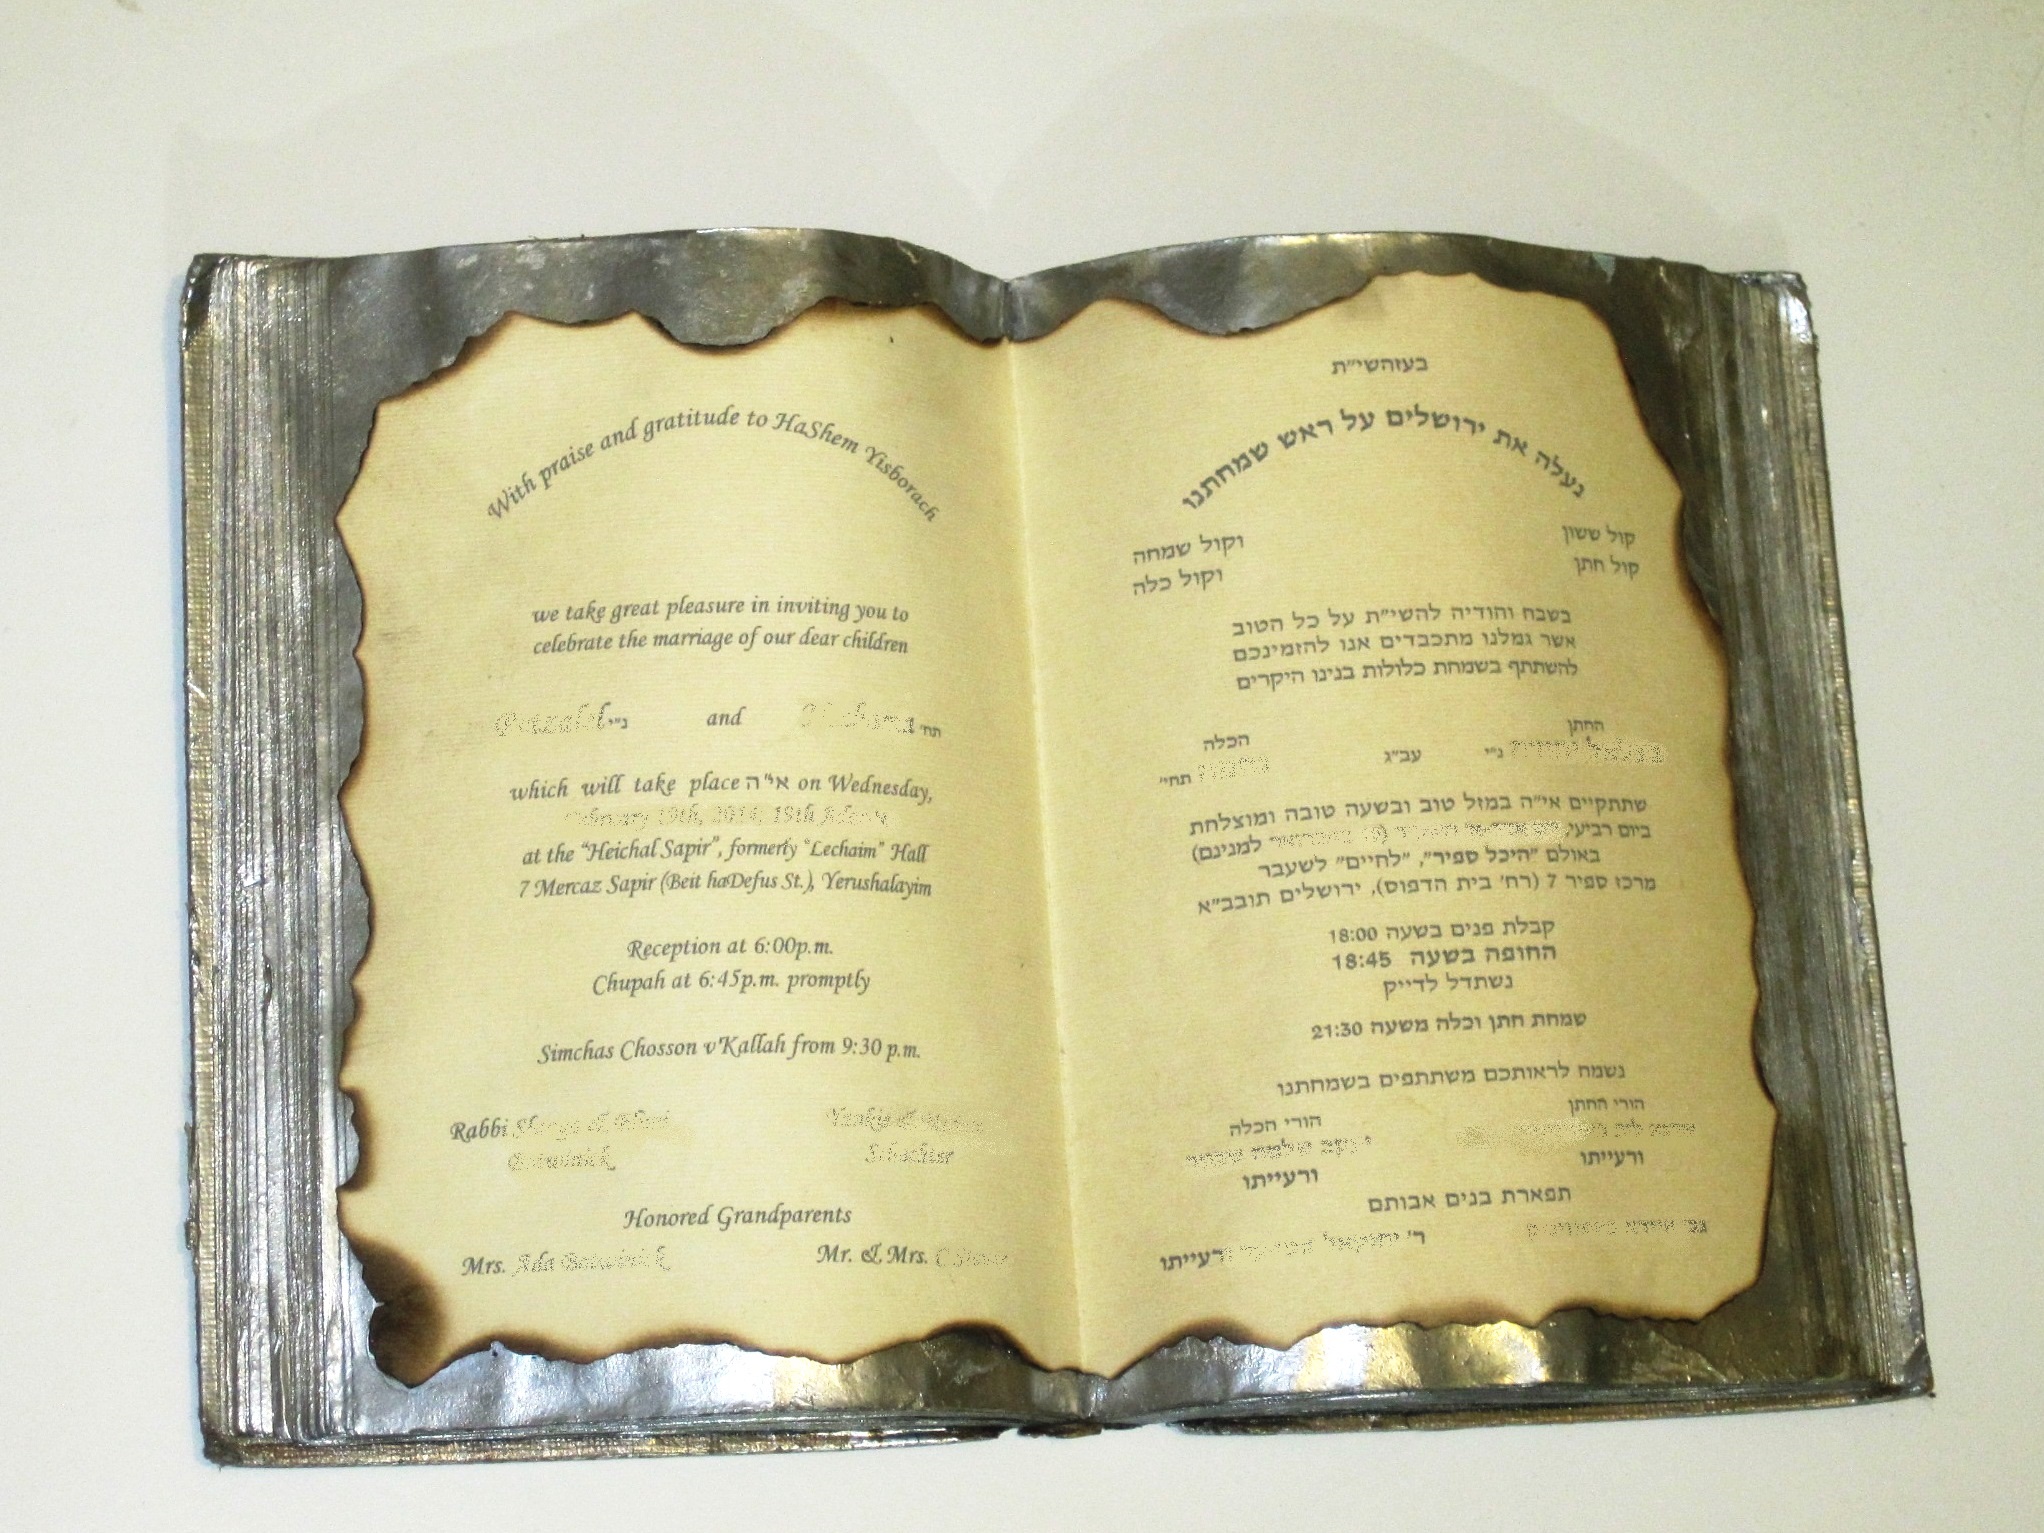 With praise and gratitude to HaShem Yisborach
we take great pleasure in inviting you to
celebrate the marriage of our dear children
נ"י and תחי'
which will take place אי"ה on Wednesday,
at the "Heichal Sapir", formerly "Lechaim" Hall
7 Mercaz Sapir (Beit haDefus St.), Yerushalayim
Reception at 6:00p.m.
Chupah at 6:45p.m. promptly
Simchas Chosson v'Kallah from 9:30 p.m.
Rabbi
Honored Grandparents
Mrs. Mr. & Mrs.
בעזהשי"ת
נעלה את ירושלים על ראש שמחתנו
קול ששון וקול שמחה
קול חתן וקול כלה
בשבח והודיה להשי"ת על כל הטוב
אשר גמלנו מתכבדים אנו להזמינכם
להשתתף בשמחת כלולות בנינו היקרים
החתן הכלה
נ"י עב"ג תחי'
שתתקיים אי"ה במזל טוב ובשעה טובה ומוצלחת
ביום רביעי, למנינם)
באולם "היכל ספיר", "לחיים" לשעבר
מרכז ספיר 7 (רח' בית הדפוס), ירושלים תובב"א
קבלת פנים בשעה 18:00
החופה בשעה 18:45
נשתדל לדייק
שמחת חתן וכלה משעה 21:30
נשמח לראותכם משתתפים בשמחתנו
הורי החתן הורי הכלה
ורעייתו ורעייתו
תפארת בנים אבותם
ר' ורעייתו